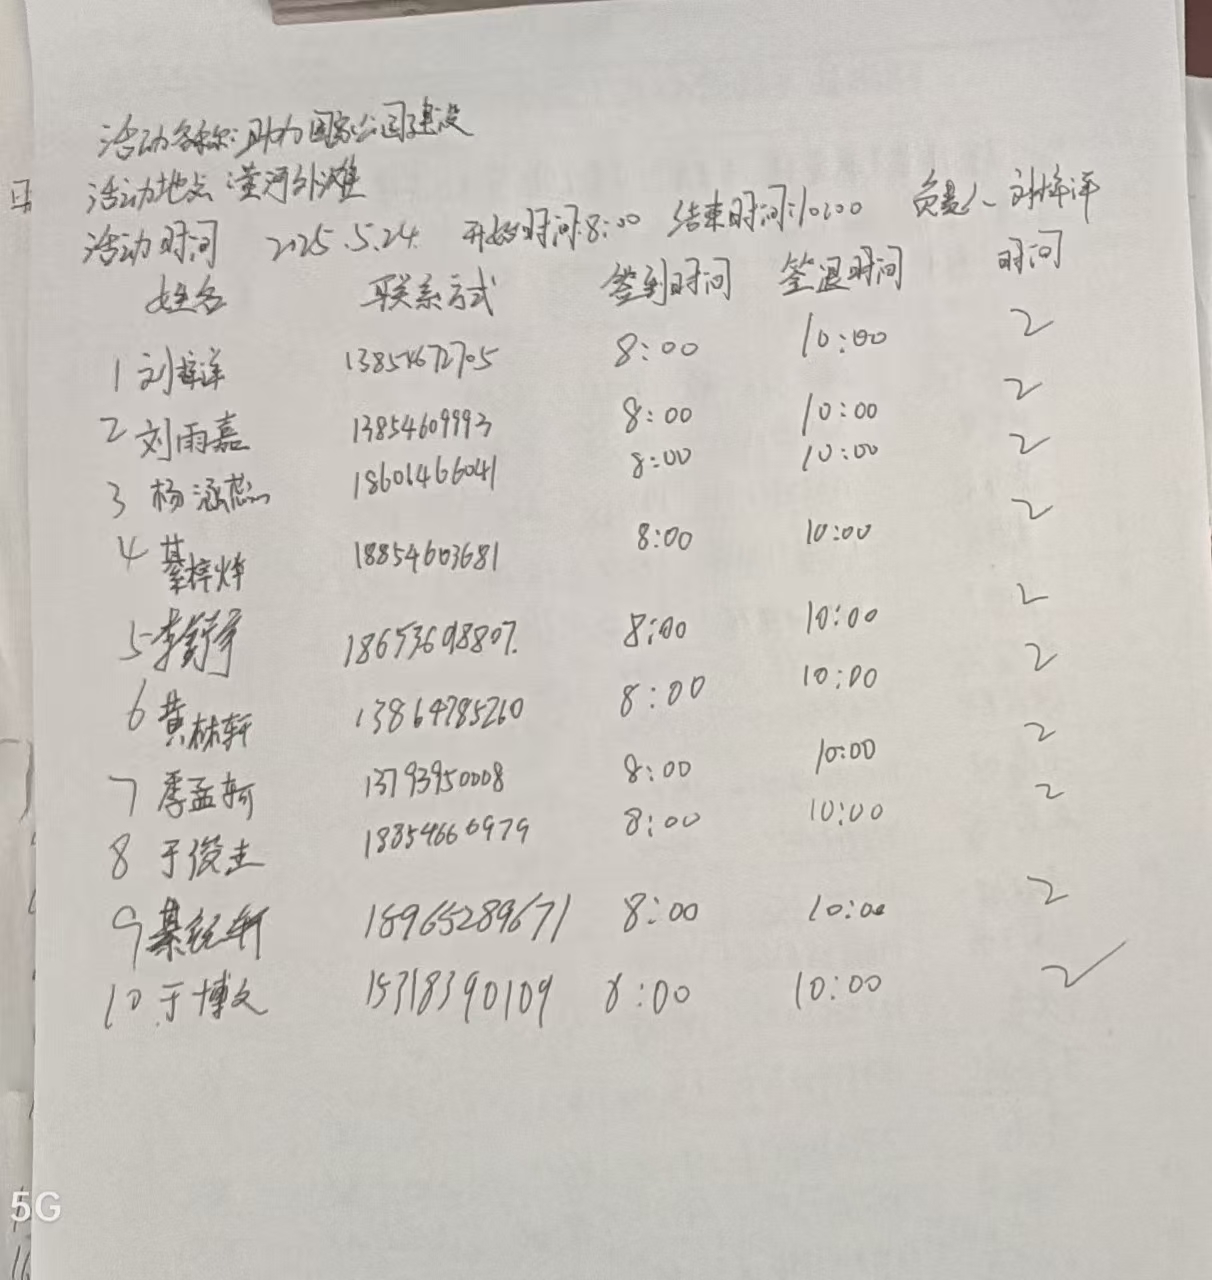 活动名称:助力国家公园建设
活动地点 黄河外滩
活动时间 2025.5.24. 开始时间:8:00 结束时间:10:00 负责人、刘梓洋
姓名 联系方式 签到时间 签退时间 时间
1 刘梓洋 13854672705 8:00 10:00 2
2 刘雨嘉 13854609993 8:00 10:00 2
3 杨涵蕊 18601466041 8:00 10:00 2
4 綦梓烨 18854603681 8:00 10:00 2
5 李 18653698807. 8:00 10:00 2
6 黄林轩 13864785260 8:00 10:00 2
7 季孟轲 13793950008 8:00 10:00 2
8 于俊杰 18854666979 8:00 10:00 2
9 綦 轩 18965289671 8:00 10:00 2
10 于博文 15318390109 8:00 10:00 2
5G